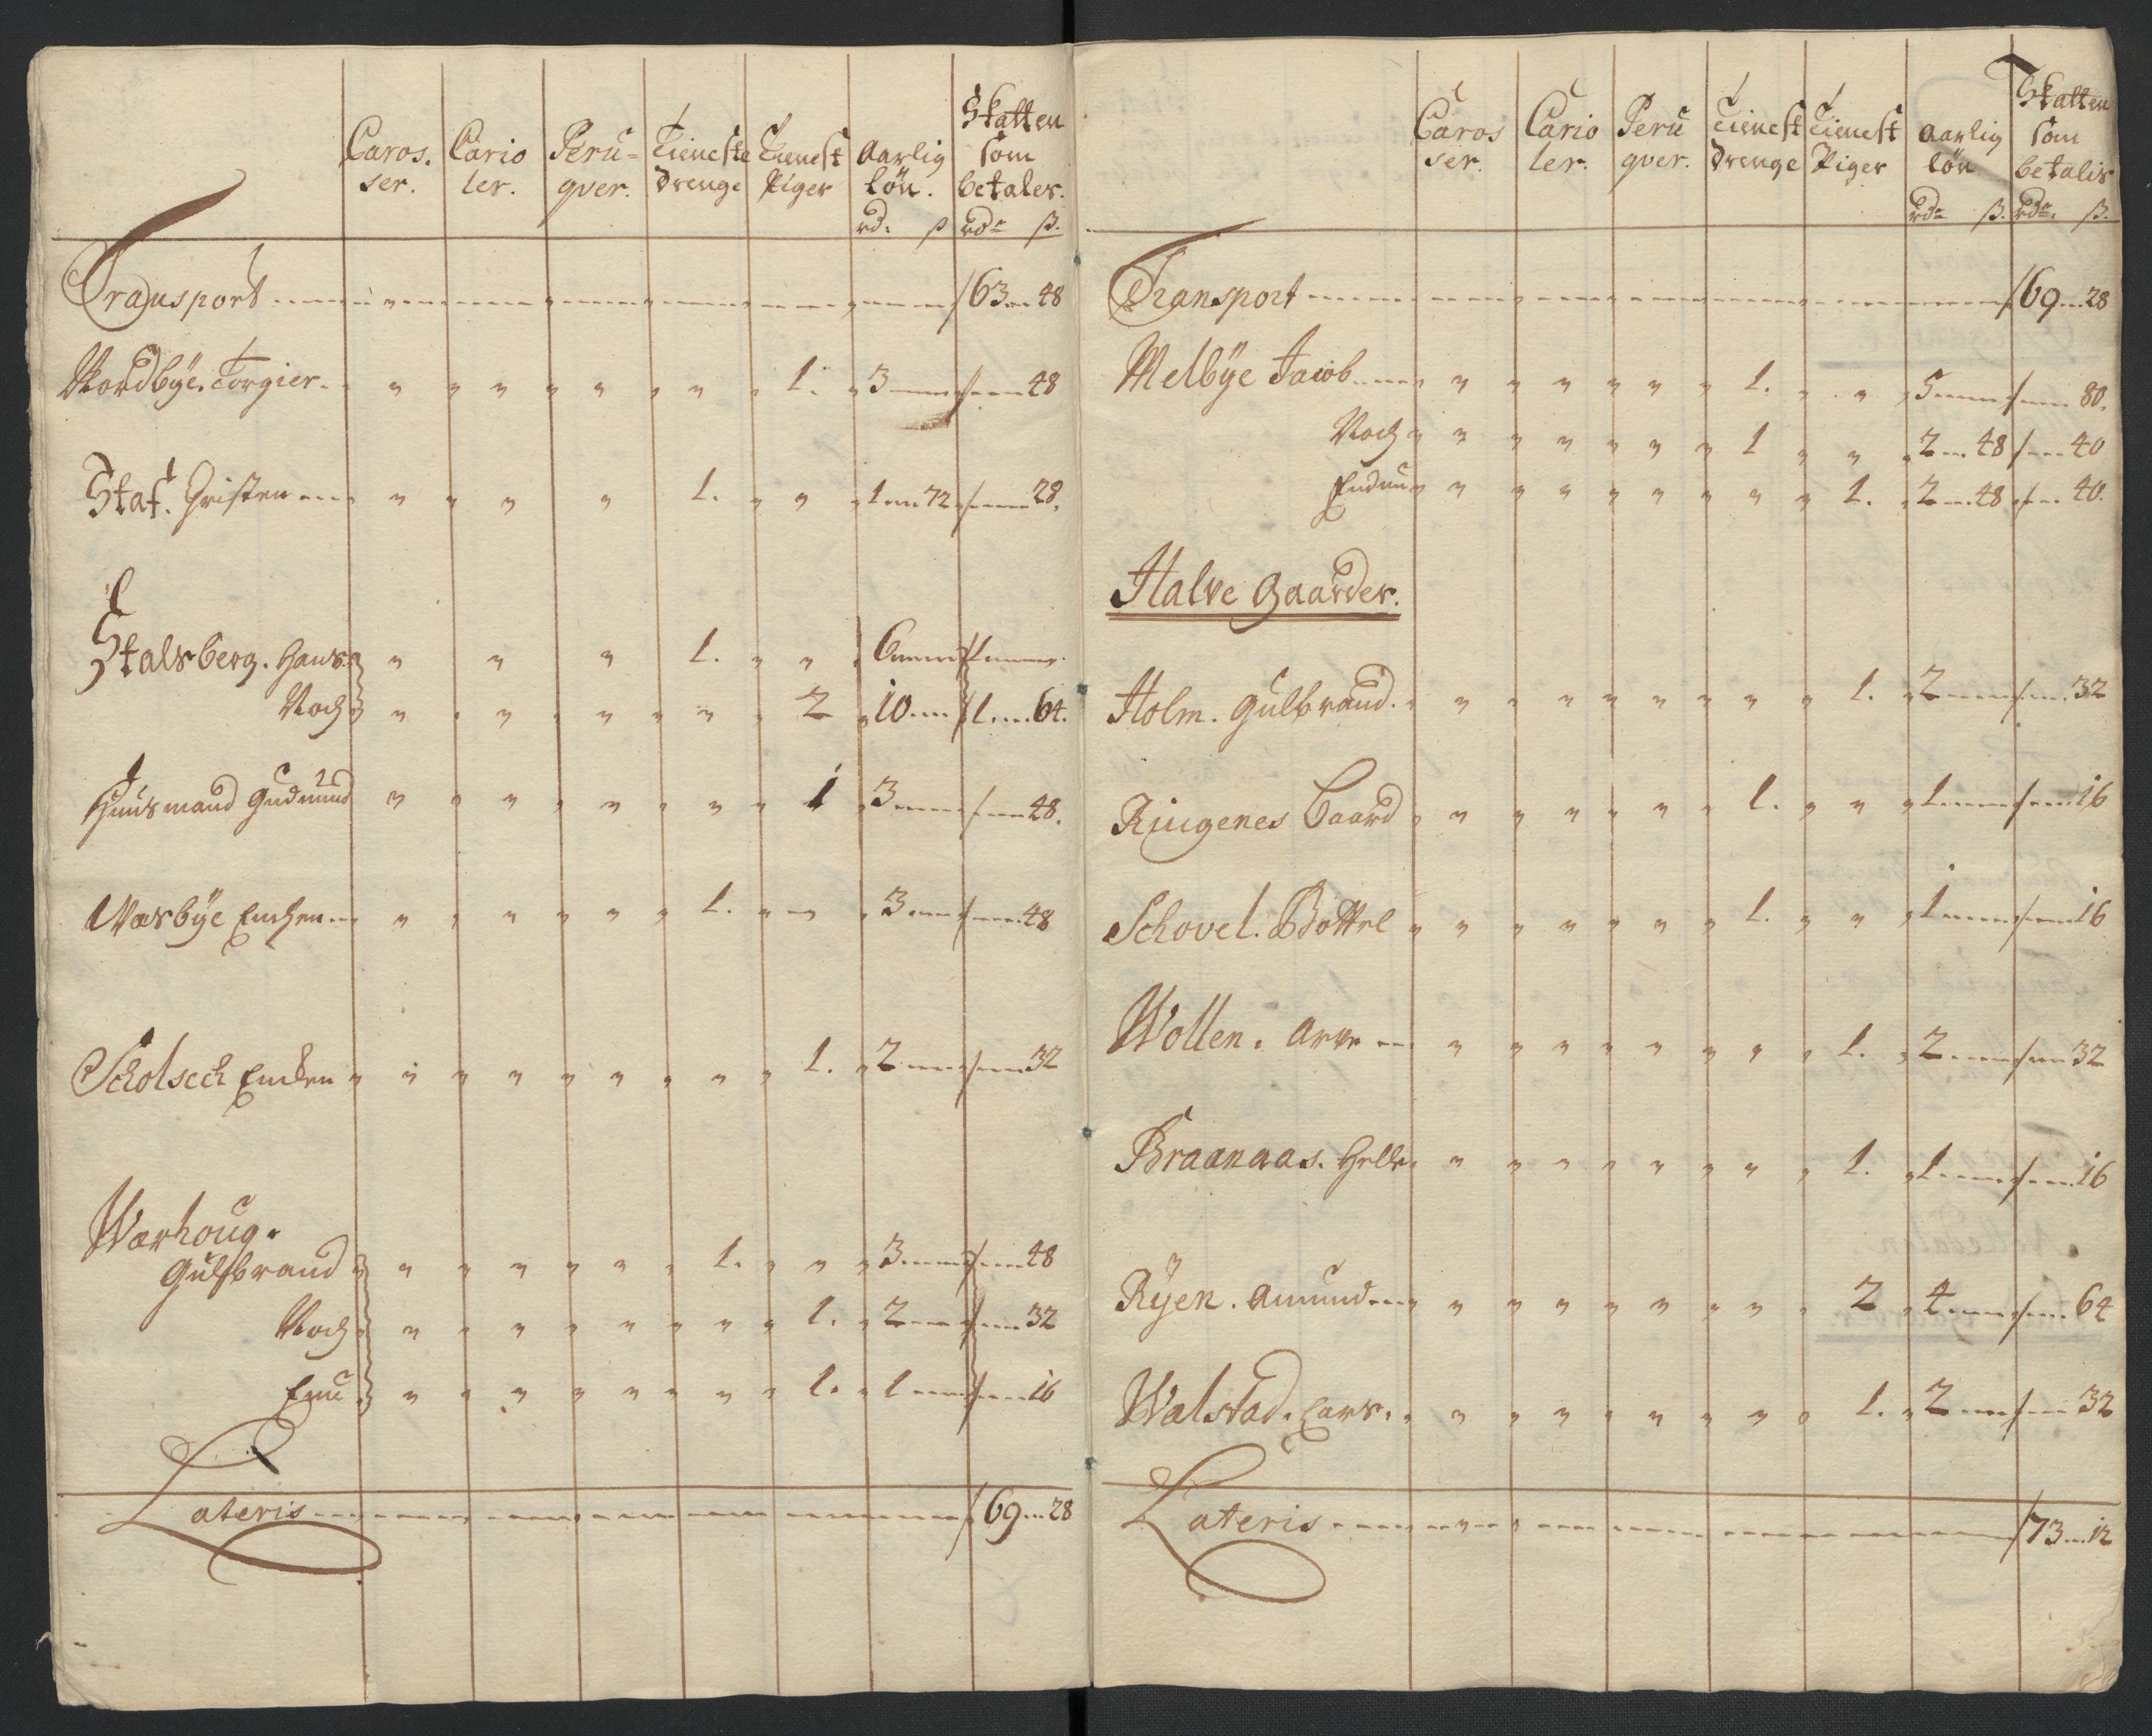 Caros. ser. | Cario ler. | Peru= qver. | Tieneste drenge | Tienest Piger | Aarlig løn. rd: ß | Skatten som betales. rdr ß.
Transport 63 48
Nordbÿe. Torgier. 1. 3 48
Staf. Cristen 1. 1 72 28.
Stalsberg. Hans 1. 6 1
Noch 2 10 1 64.
Huusmand Gudmund 1 3 48.
Wæsbÿe 1. 3 48
Scholsech 1. 2 32
Wærhoug.
Gulbrand 1. 3 48
Noch 1. 2 32
Enu 1. 1 16
Lateris 69 28
Caros ser. | Cario ler. | Peru qver. | Tienest drenge | Tienest Piger | Aarlig løn rdr ß. | Skatten som betalis rdr. ß.
Transport 69 28
Melbÿe Jacob 1. 5 80.
Noch 1 2 48 40
Endnu 1. 2 48 40.
Halve Gaarder.
Holm. Gulbrand. 1. 2 32
Ringenes Baard 1. 1 16
Schovel. Bottel 1. 1 16
Wollen. Arne 1. 2 32
Braanaas. Helle 1. 1 16
Rÿen. Amund 2 4 64
Walstad. Lars. 1. 2 32
Lateris 73 12